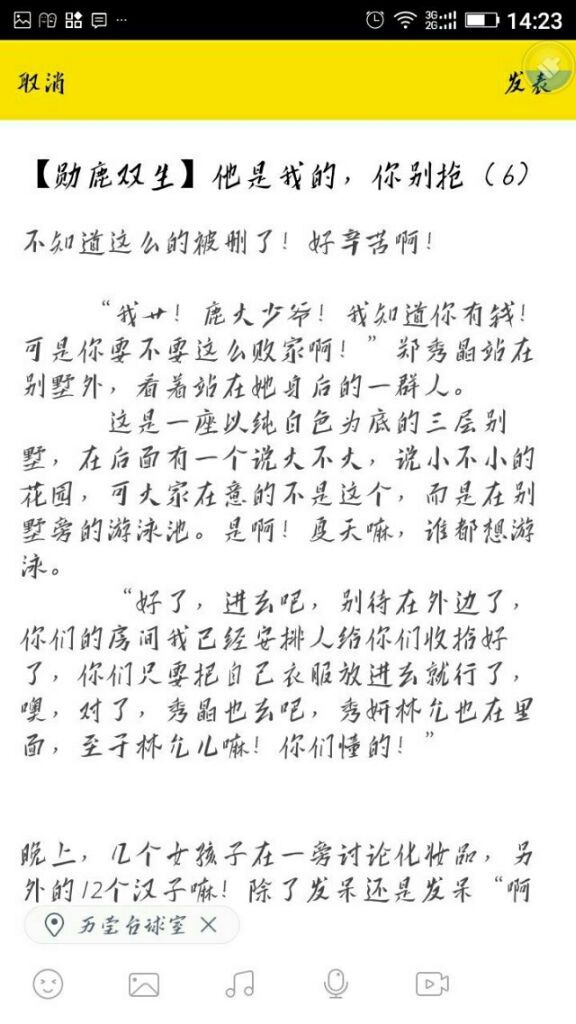 3G
2G
14:23
取消
发表
【勋鹿双生】他是我的，你别抢（6）
不知道这么的被删了！好辛苦啊！
“我艹！鹿大少爷！我知道你有钱！
可是你要不要这么败家啊！”郑秀晶站在
别墅外，看着站在她身后的一群人。
这是一座以纯白色为底的三层别
墅，在后面有一个说大不大，说小不小的
花园，可大家在意的不是这个，而是在别
墅旁的游泳池。是啊！夏天嘛，谁都想游
泳。
“好了，进去吧，别待在外边了，
你们的房间我已经安排人给你们收拾好
了，你们只要把自己衣服放进去就行了，
噢，对了，秀晶也去吧，秀妍林允也在里
面，至于林允儿嘛！你们懂的！”
晚上，几个女孩子在一旁讨论化妆品，另
外的12个汉子嘛！除了发呆还是发呆“啊
万堂台球室